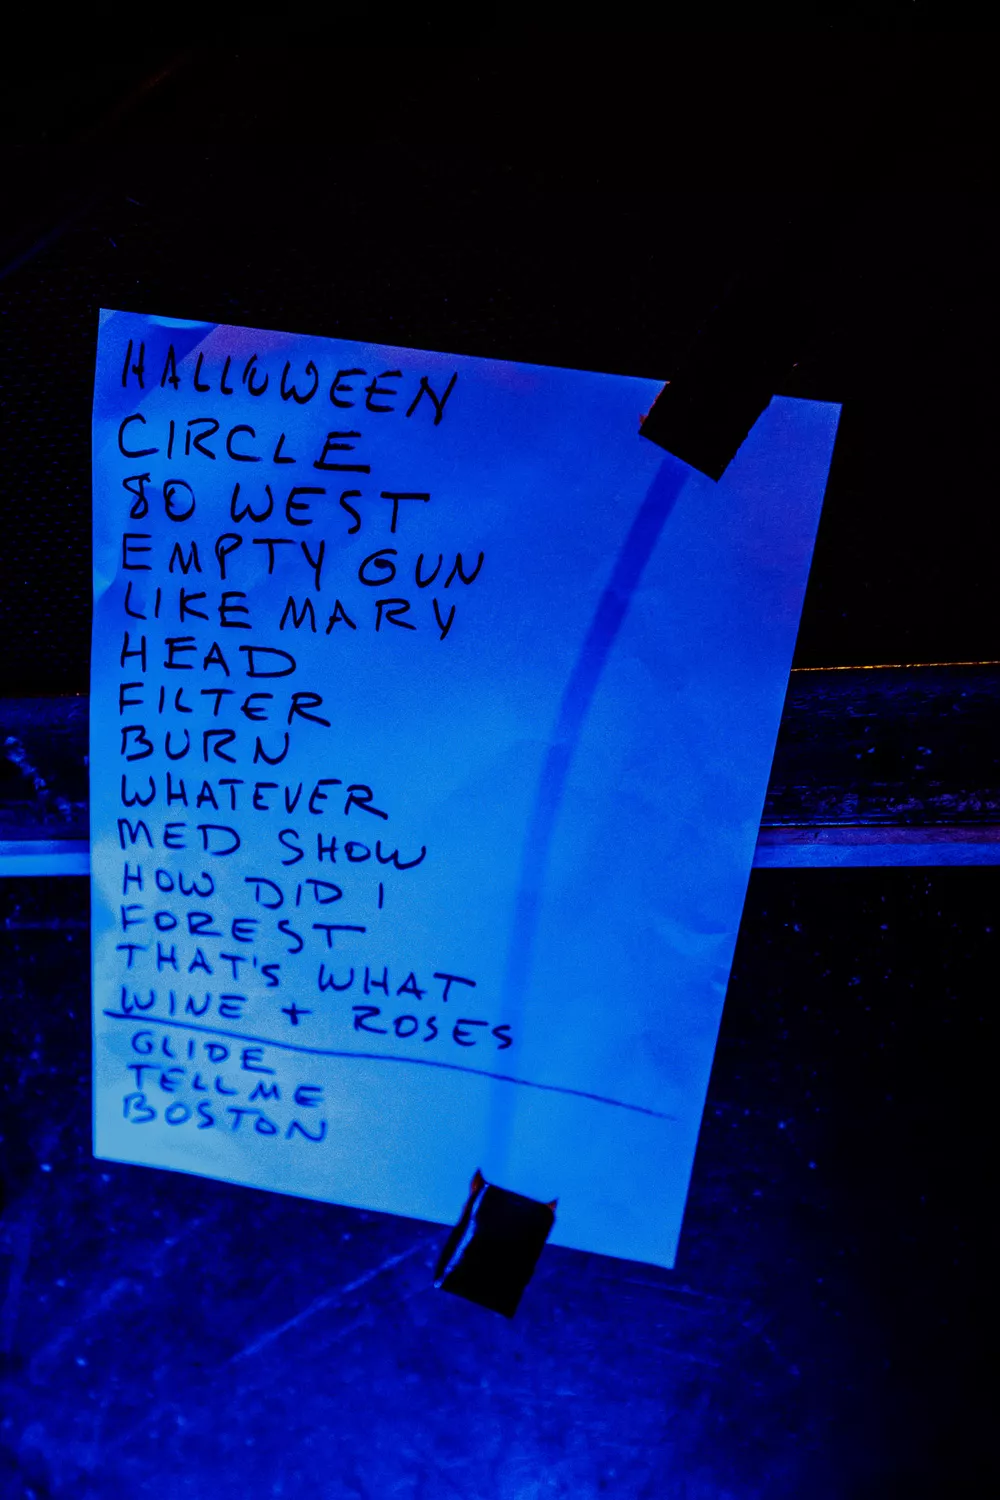 HALLOWEEN
CIRCLE
80 WEST
EMPTY GUN
LIKE MARY
HEAD
FILTER
BURN
WHATEVER
MED SHOW
HOW DID I
FOREST
THAT'S WHAT
WINE + ROSES
GLIDE
TELL ME
BOSTON